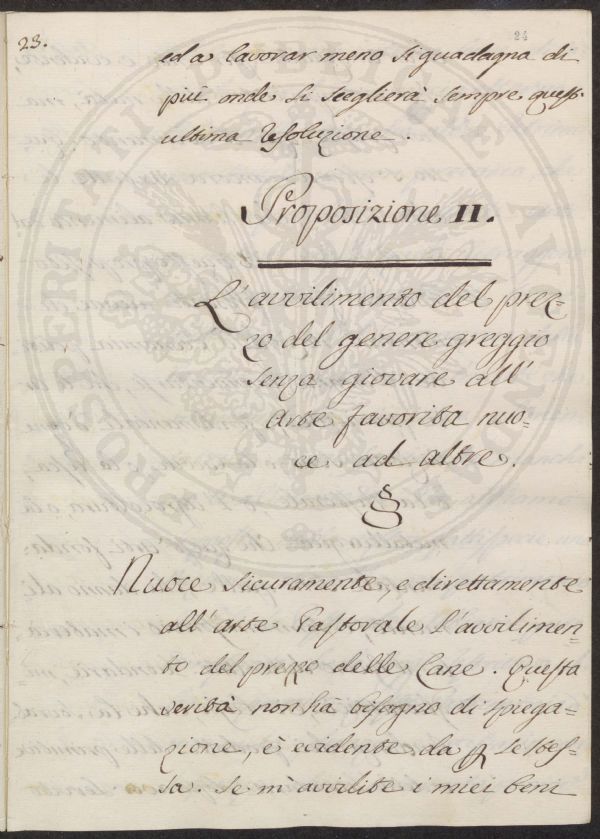 23.
24
ed a lavorar meno si guadagna di
più onde si sceglierà sempre quest'
ultima Resoluzione.
Proposizione II.
L'avvilimento del prez=
zo del genere greggio
senza giovare all'
arte favorita nuo=
ce ad altre.
§
Nuoce sicuramente, e direttamente
all'arte Pastorale l'avvilimen=
to del prezzo delle Lane. Questa
verità non hà bisogno di spiega=
zione, è evidente da per se stes=
sa. Se m'avvilite i miei beni
PROSPERITATI PUBLICAE AUGENDAE